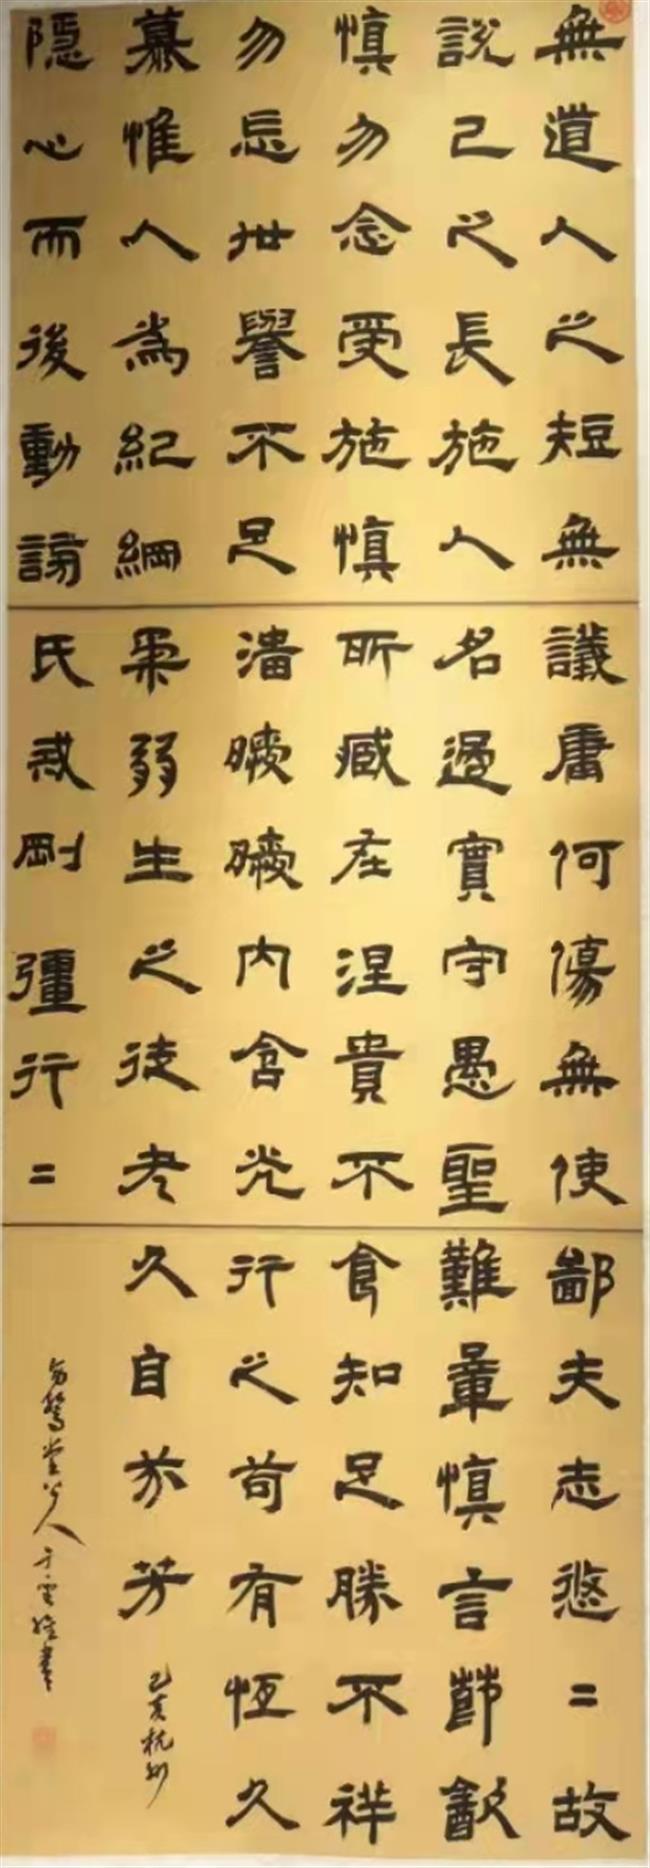 無道人之短無
說己之長施人
慎勿念受施慎
勿忘世譽不足
慕惟人為紀綱
隱心而後動謗
議庸何傷無使
名過實守愚聖
所臧在涅貴不
淄曖曖內含光
柔弱生之徒老
氏戒剛彊行=
鄙夫志悠=故
難量慎言節飲
食知足勝不祥
行之苟有恆久
久自芬芳
己亥杭州
堂主人于書